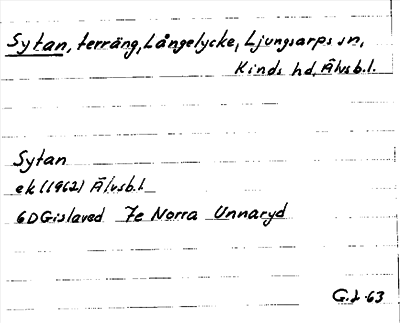 Sytan, terräng, Långelycke, Ljungsarps sn,
Kinds hd, Älvsb.l.
Sytan
ek (1962) Älvsb.l
6D Gislaved 7e Norra Unnaryd
G.L-63